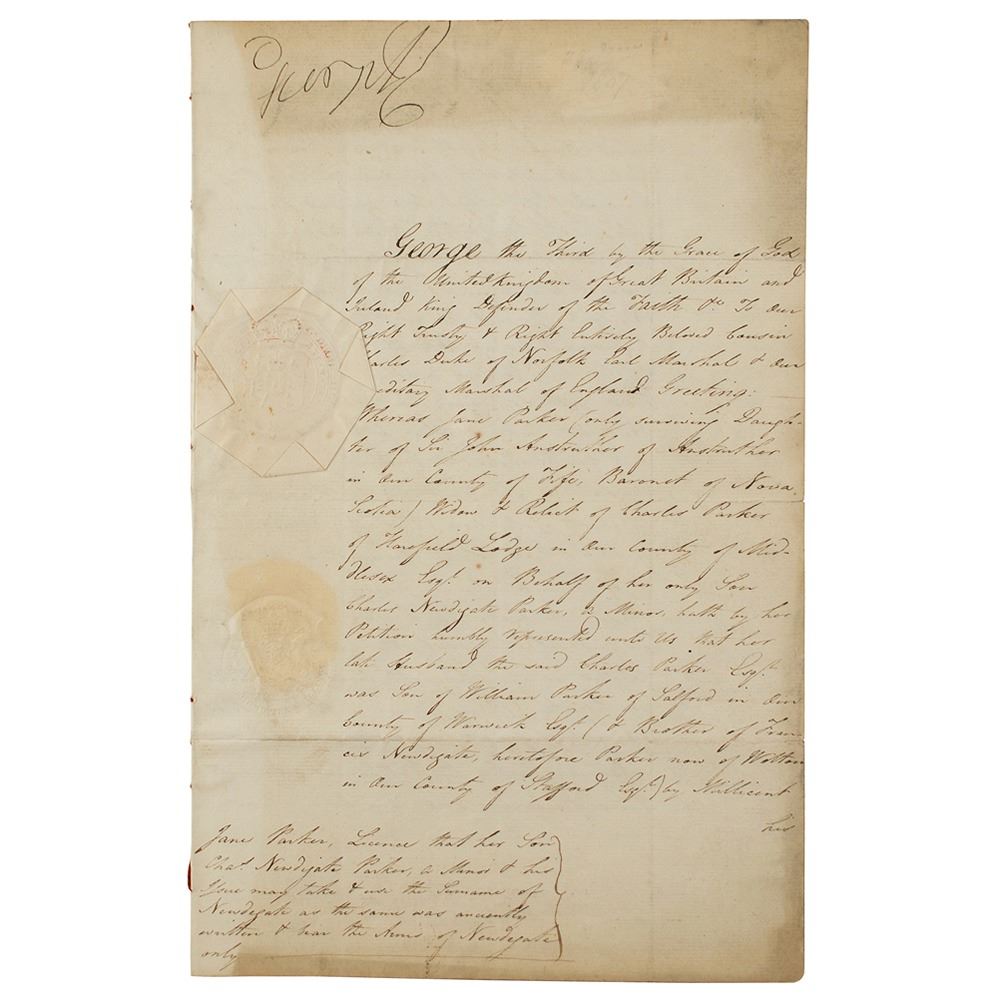 George R
George the Third by the Grace of God
of the United Kingdom of Great Britain and
Ireland King Defender of the Faith &c. To Our
Right Trusty & Right Entirely Beloved Cousin
Charles Duke of Norfolk Earl Marshal & Our
Hereditary Marshal of England Greeting:
Whereas Jane Parker (only surviving Daugh-
ter of Sir John Anstruther of Anstruther
in Our County of Fife, Baronet of Nova
Scotia) Widow & Relict of Charles Parker
of Harefield Lodge in Our County of Mid-
dlesex Esqr. on Behalf of her only Son
Charles Newdigate Parker, a Minor, hath by her
Petition humbly represented unto Us that her
late Husband the said Charles Parker Esqr.
was Son of William Parker of Salford in Our
County of Warwick Esqr. (& Brother of Fran-
cis Newdigate, heretofore Parker now of Wotton
in Our County of Stafford Esqr.) by Millicent
his
Jane Parker, Licence that her Son
Chas. Newdigate Parker, a Minor & his
Issue may take & use the Surname of
Newdegate as the same was anciently
written & bear the Arms of Newdegate
only